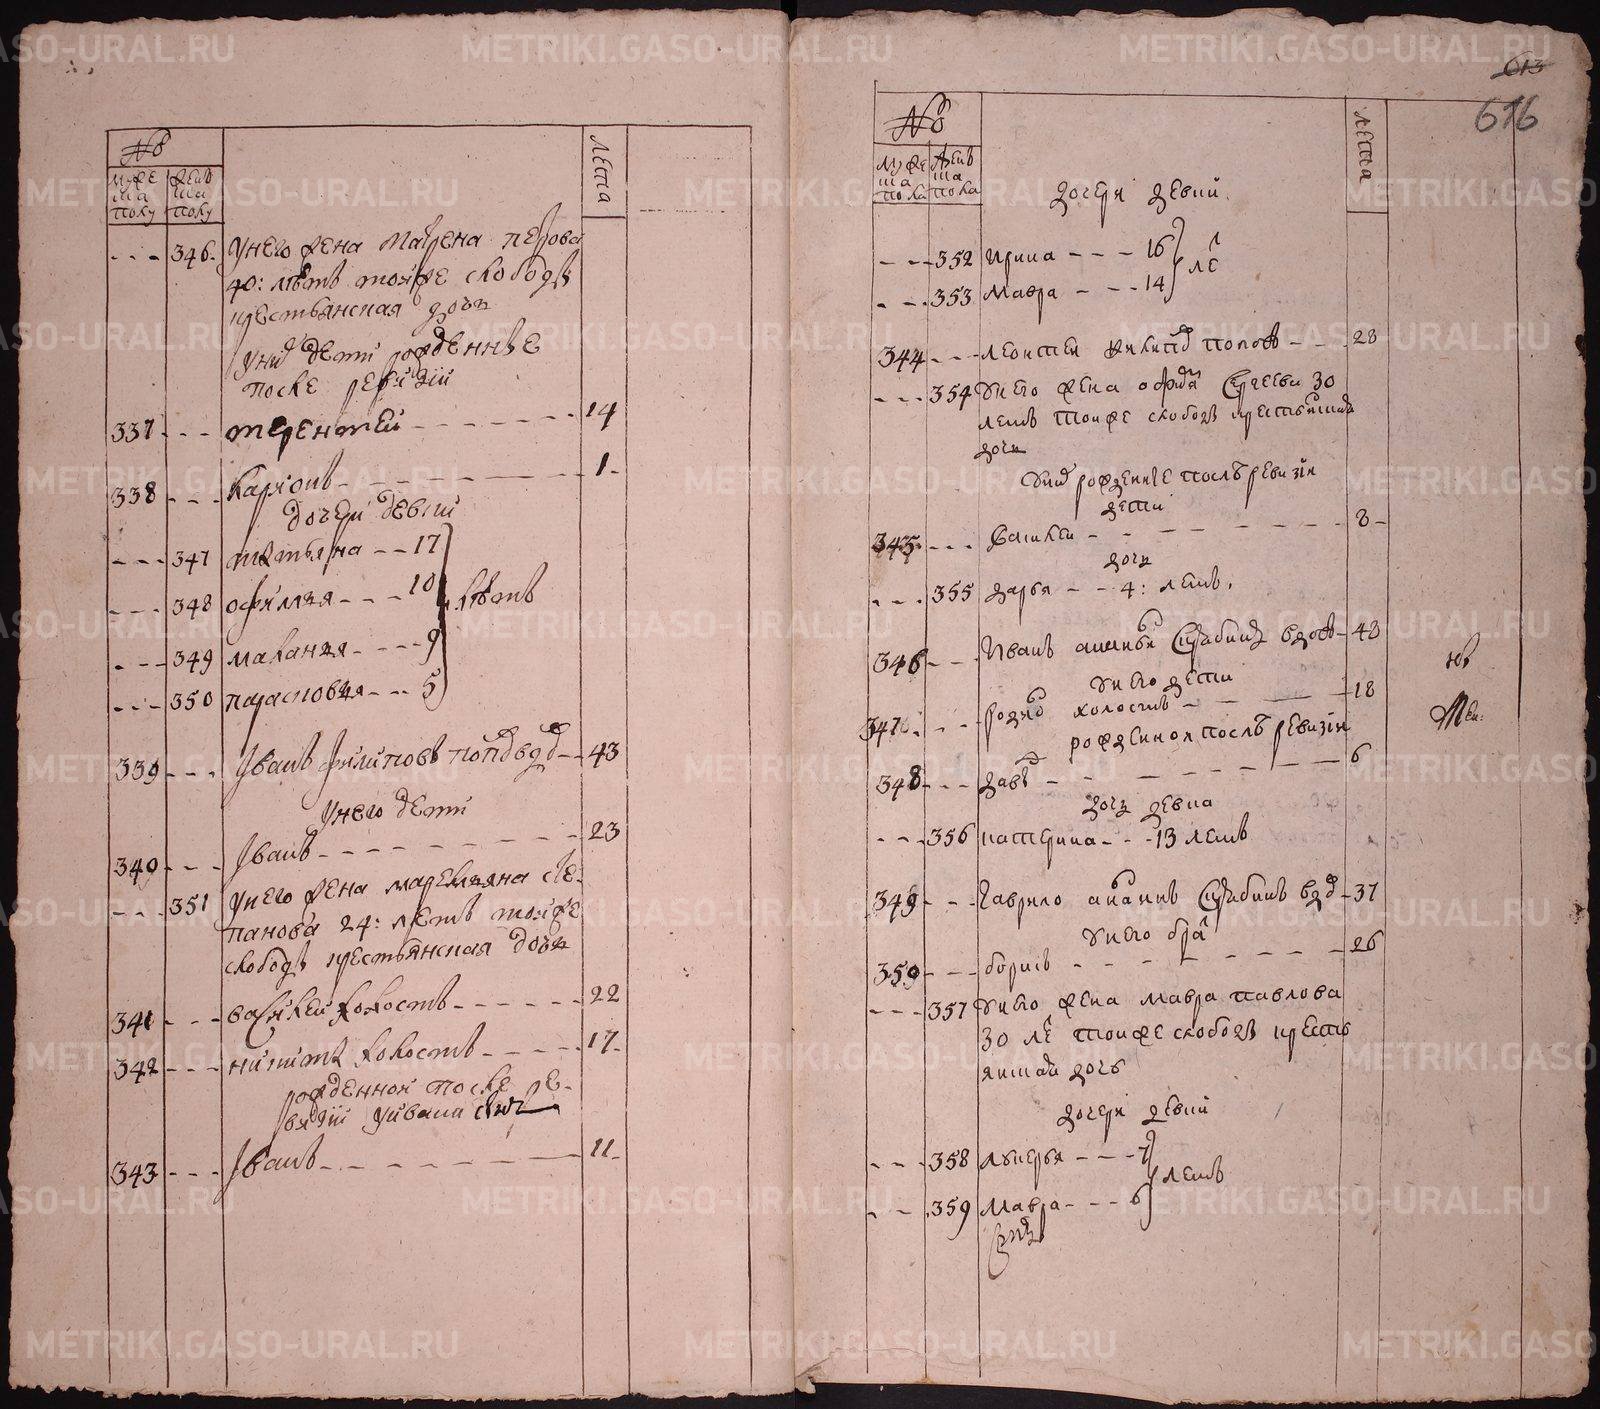 №
муже
ска
полу
женъ
ска
полу
лета
346 Унего жена матрена перова
40: лѣтъ тоиже слободѣ
крестьянская дочь
Уних дети рожденные
после ревизіи
337 терентеи 14
338 карпъ 1
дочери девки
347 татьяна 17
348 офимья 10 лѣтъ
349 маланья 9
350 парасковья 5
339 Иванъ филиповъ поповъ вдов 43
Унего дети
340 Иванъ 23
351 Унего жена маремьяна сте
панова 24: летъ тоиже
слободѣ крестьянская дочь
341 василеи холостъ 22
342 никита холостъ 17
рожденнои после ре
визіи Уивана сынъ
343 Иванъ 11
613
616
№
муже
ска
пола
женъ
ска
пола
лета
дочери девки
352 Ирина 16 ле
353 Мавра 14
344 леонтеи никит попов 28
354 Унего жена Сергеева 30
летъ тоиже слободѣ крестьянская
дочь
Уних рожденные послѣ ревизіи
дети
345 Василеи 8
дочь
355 дарья 4: летъ
346 Иванъ вдов 43
Унего дети
347 родио холостъ 18
рожденнои послѣ ревизіи
348 давы 6
дочь девка
356 катерина 13 летъ
349 Гаврило вдов 37
Унего бра
350 борисъ 26
357 Унего жена мавра павлова
30 ле тоиже слободѣ кресть
янская дочь
дочери девки
358 лукерья 7 летъ
359 Мавра 6